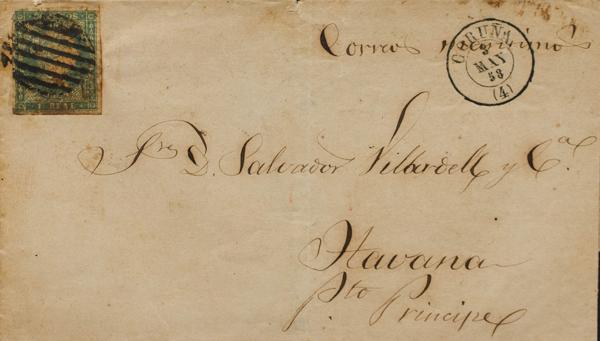 1 REAL
Correo maritimo
CORUÑA
3
MAY
58
(4)
Sres D. Salvador Villardell y Ca.
Havana
Pto Principe